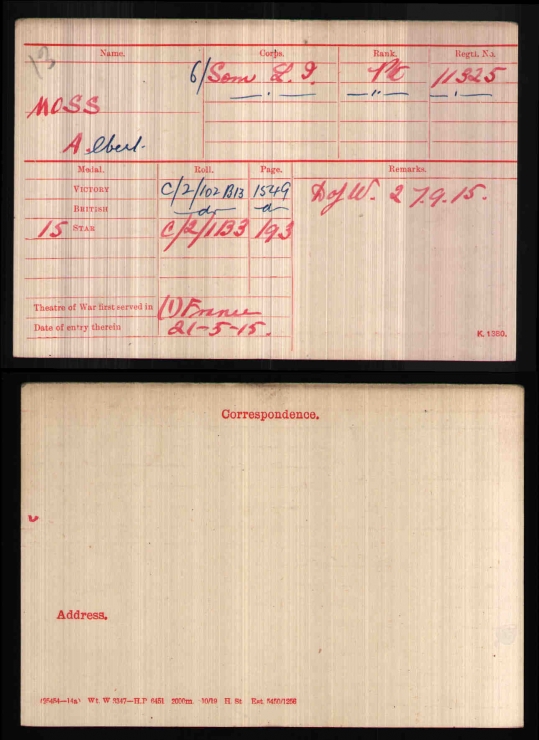 13
Name. Corps. Rank. Regtl. No.
6/Som L.I. Pte 11325
— " — — " — — " —
MOSS
Albert.
Medal. Roll. Page. Remarks.
VICTORY C/2/102 B13 1549 D of W. 27.9.15.
BRITISH —do— —do—
15 STAR C/2/1B3 193
Theatre of War first served in (1) France
Date of entry therein 21-5-15.
K. 1380.
Correspondence.
Address.
Wt. W 5347—H.P 6451 2000m. 10/19 H. St